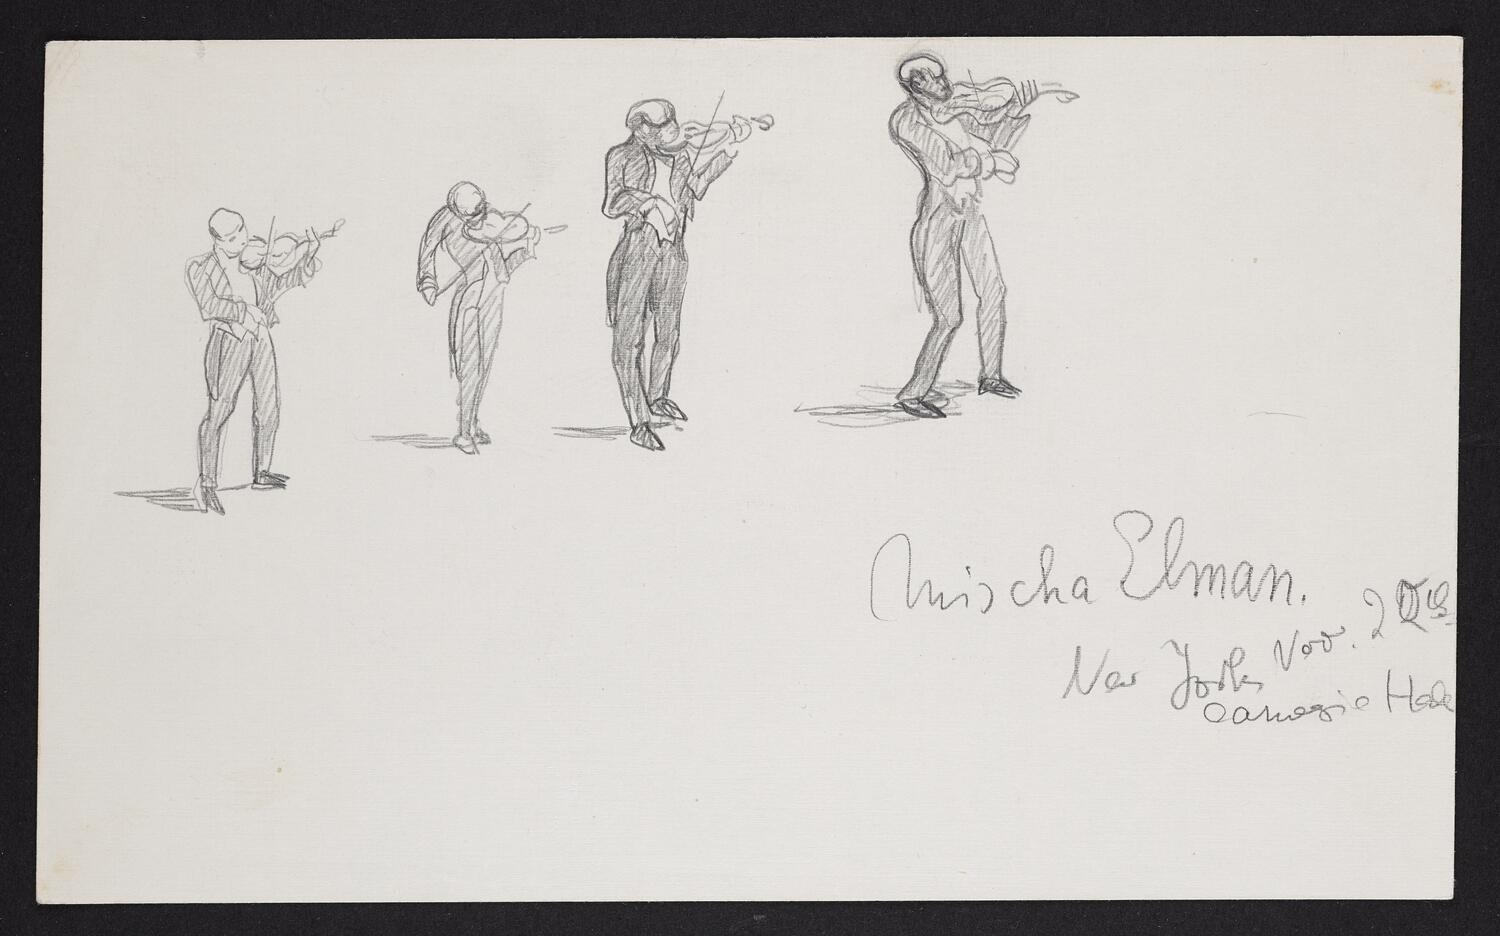 Mischa Elman.
New York Nov. 2
Carnegie Hall